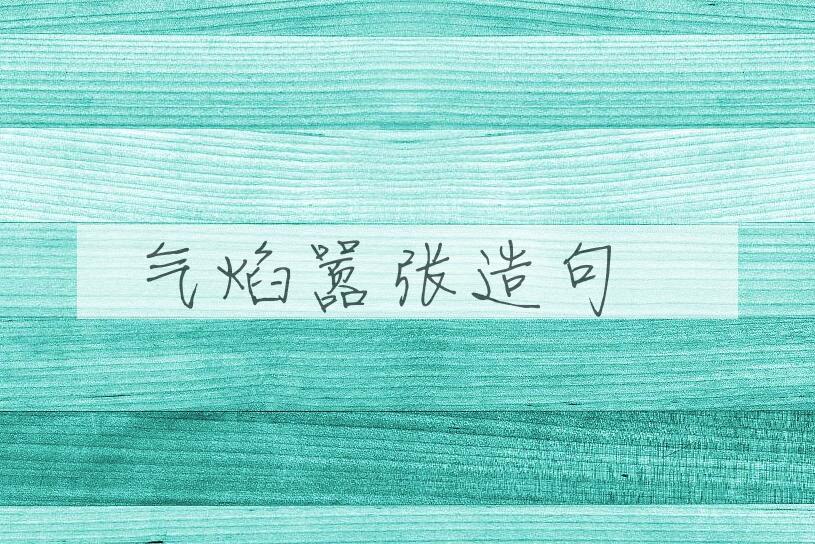 气焰嚣张造句